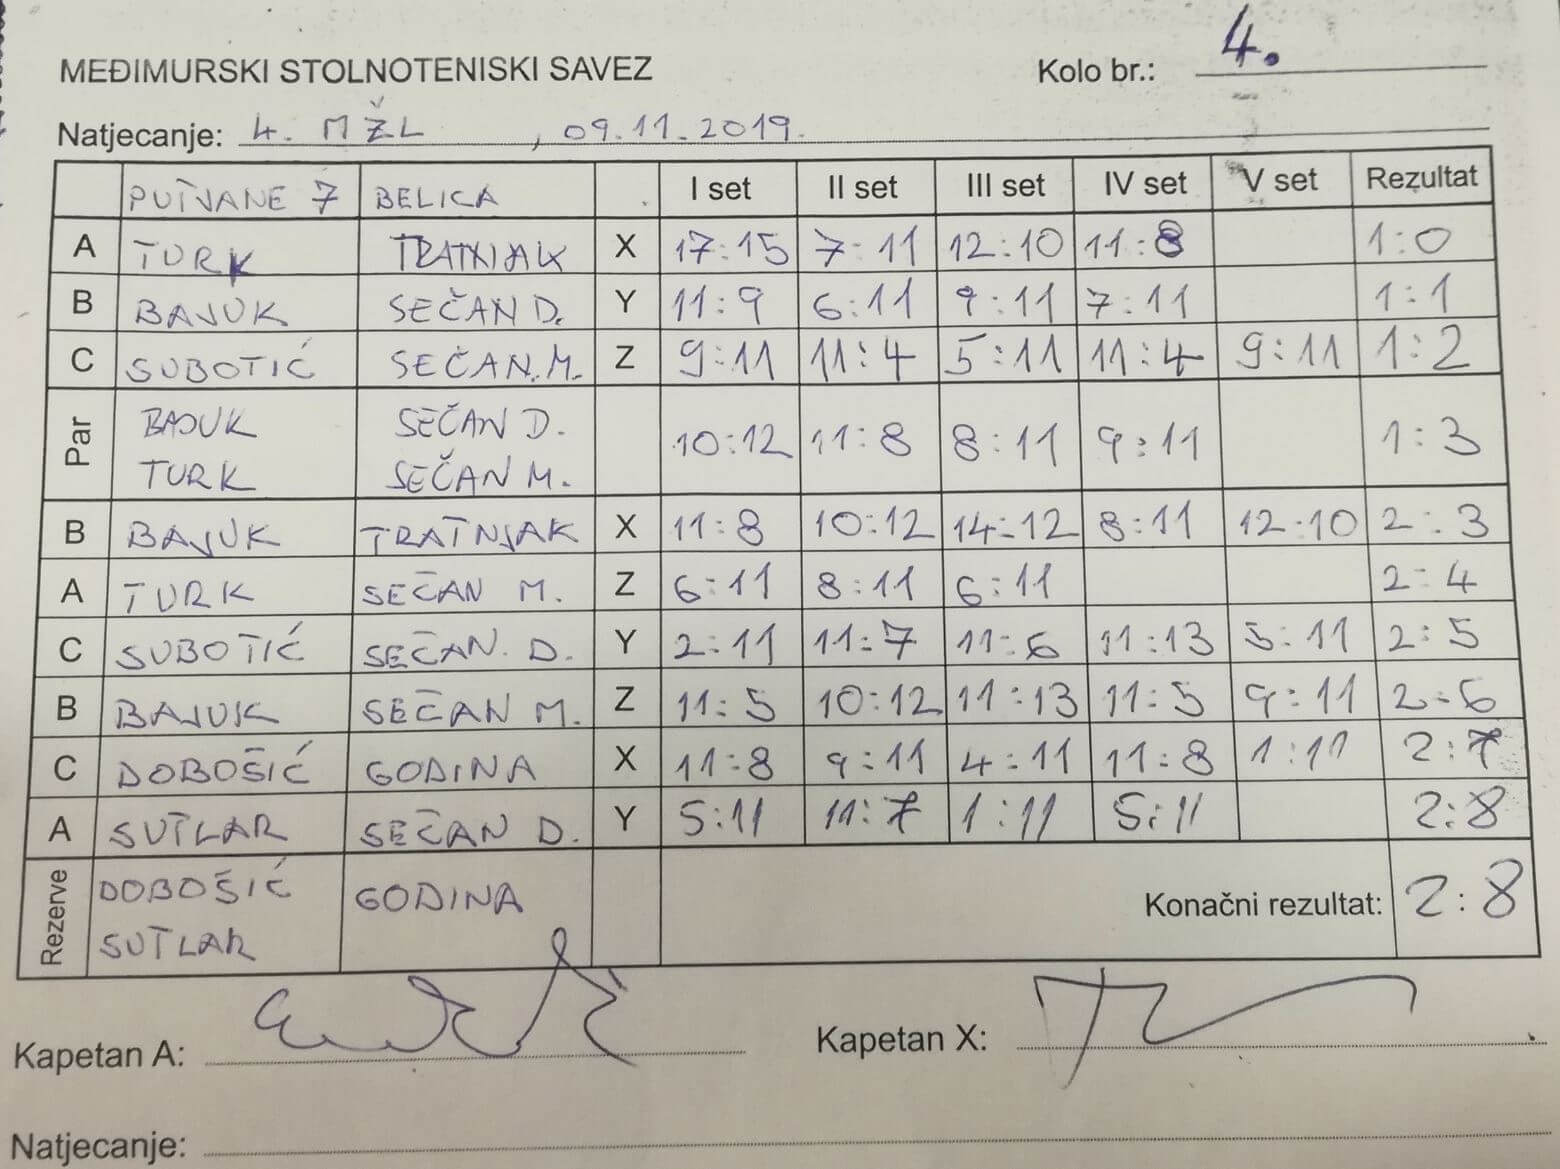 MEĐIMURSKI STOLNOTENISKI SAVEZ Kolo br.: 4.
Natjecanje: 4. MŽL, 09.11.2019.
PUTJANE 7 BELICA I set II set III set IV set V set Rezultat
A TURK TRATNJAK X 17:15 7:11 12:10 11:8 1:0
B BAJUK SEČAN D. Y 11:9 6:11 9:11 7:11 1:1
C SUBOTIĆ SEČAN.M. Z 9:11 11:4 5:11 11:4 9:11 1:2
Par BAJUK SEČAN D. 10:12 11:8 8:11 9:11 1:3
TURK SEČAN M.
B BAJUK TRATNJAK X 11:8 10:12 14:12 8:11 12:10 2:3
A TURK SEČAN M. Z 6:11 8:11 6:11 2:4
C SUBOTIĆ SEČAN. D. Y 2:11 11:7 11:6 11:13 5:11 2:5
B BAJUK SEČAN M. Z 11:5 10:12 11:13 11:5 9:11 2:6
C DOBOŠIĆ GODINA X 11:8 9:11 4:11 11:8 1:11 2:7
A SUTLAR SEČAN D. Y 5:11 11:7 1:11 5:11 2:8
Rezerve DOBOŠIĆ GODINA Konačni rezultat: 2:8
SUTLAR
Kapetan A: Kapetan X:
Natjecanje: